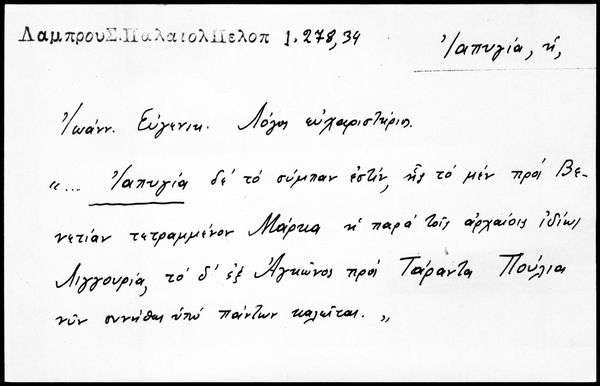 ΛαμπρουΣ.ΠαλαιολΠελοπ 1.278,34
Ἰαπυγία, ἡ,
Ἰωάνν. Εὐγενικ. Λόγος εὐχαριστήριος.
"... Ἰαπυγία δέ τό σύμπαν ἐστίν, ἧς τό μέν πρός Βε-
νετίαν τετραμμένον Μάρκα ἡ παρά τοῖς ἀρχαίοις ἰδίως
Λιγγουρία, τό δ' ἐξ Ἀγκῶνος πρός Τάραντα Πούλια
νῦν συνήθως ὑπό πάντων καλεῖται. „